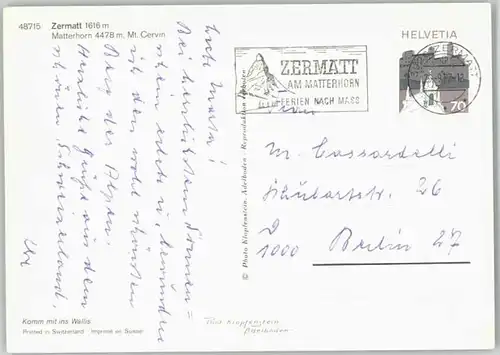 48715 Zermatt 1616 m
Matterhorn 4478 m, Mt. Cervin
HELVETIA
ZERMATT
AM MATTERHORN
FERIEN NACH MASS
ZERMATT
70
Bei herrlichstem Sonnen=
ich den wohl schönsten
Berg der Alpen.
Herzliche Grüße aus dem
schönen Schweizerland,
Frau
M. Cassardelli
26
D
1000 Berlin 27
© Photo Klopfenstein, Adelboden - Reproduktion verboten
Komm mit ins Wallis
Printed in Switzerland Imprimé en Suisse
Foto Klopfenstein
Adelboden